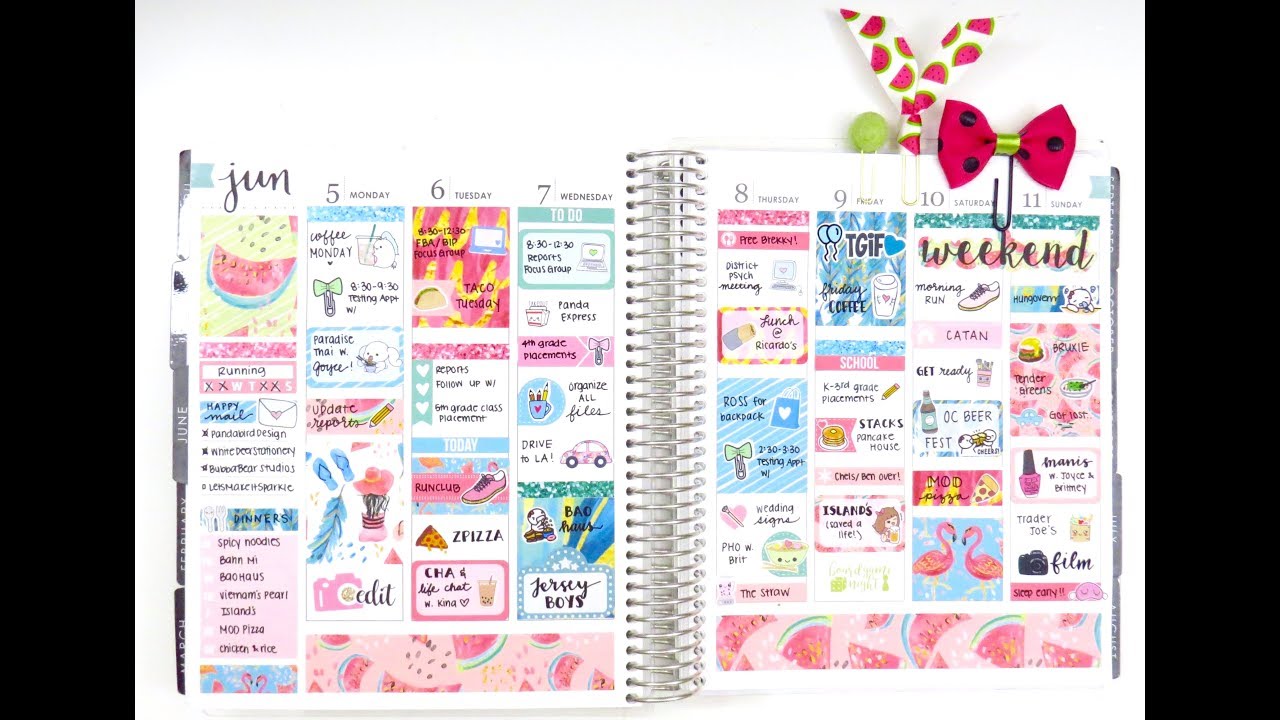 jun
Running
X X W T X X S
HAPPY
mail
Pandabird Design
White Deer Stationery
BubbaBear Studios
LetsMakeItSparkle
DINNERS
spicy noodles
Bahn Mi
BAOHAUS
Viemam's Pearl
Island's
MOD Pizza
chicken & rice
5 MONDAY
coffee
MONDAY
8:30-9:30
Testing Appt
W/
Paradise
Thai w.
Joyce!
update
reports
edit
6 TUESDAY
8:30-12:30
FBA/BIP
Focus Group
TACO
Tuesday
REPORTS
Follow up w/
6th grade class
placement
TODAY
RUNCLUB
ZPIZZA
CHA &
life chat
w. Kina
7 WEDNESDAY
TO DO
8:30-12:30
Reports
Focus Group
Panda
Express
4th grade
placements
organize
ALL
files
DRIVE
to LA!
BAO
haus
Jersey
BOYS
8 THURSDAY
Free Brekky!
District
psych
meeting
Lunch
@
Ricardo's
ROSS for
backpack
2:30-3:30
Testing Appt
W/
wedding
signs
PHO w.
Brit
The Straw
9 FRIDAY
TGIF
friday
COFFEE
SCHOOL
K-3rd grade
placements
STACKS
pancake
HOUSE
Chels/Ben over!
ISLAND'S
(saved a
life!)
boardgame
night
10 SATURDAY
11 SUNDAY
weekend
morning
RUN
CATAN
GET ready
OC BEER
FEST
CHEERS!
MOD
pizza
Hungover
BRUXIE
Tender
Greens
Got lost
manis
w. Joyce &
Britney
Trader
Joe's
film
sleep early!!
JUNE
FEBRUARY
MARCH
AUGUST